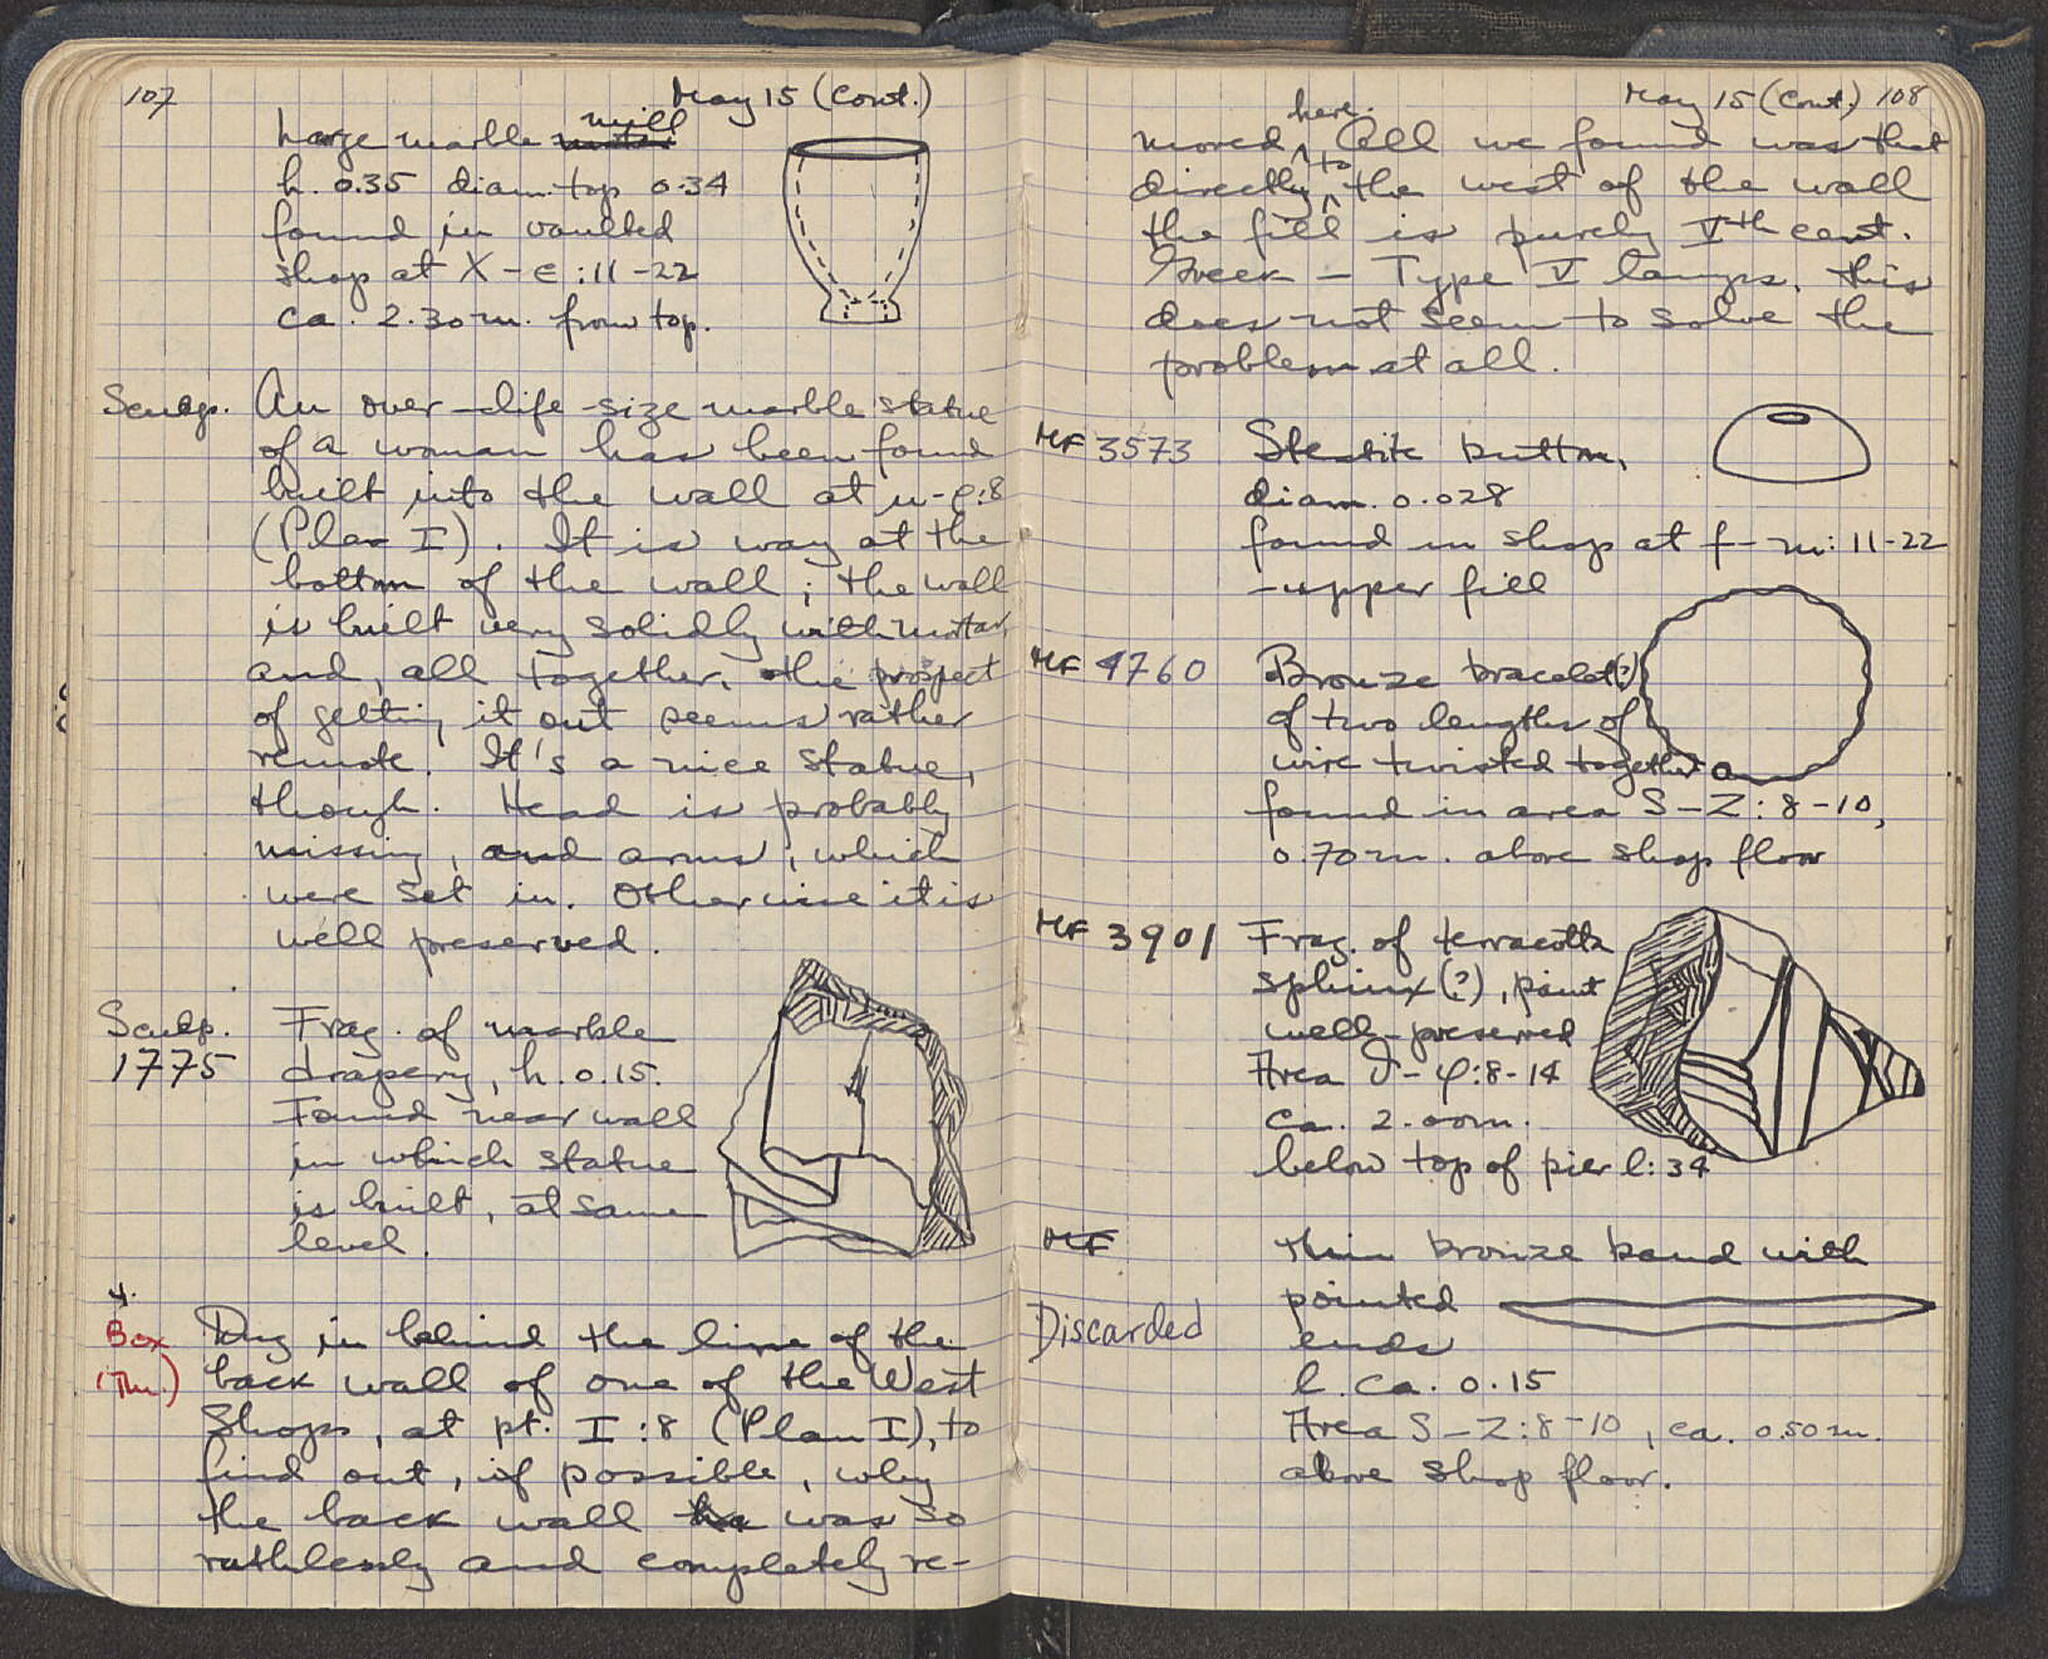 107
May 15 (cont.)
Large marble mill
h. 0.35 diam. top 0.34
found in vaulted
shop at X-E:11-22
ca. 2.30 m. from top.
Sculp. An over-life-size marble statue
of a woman has been found
built into the wall at
(Plan I). It is way at the
bottom of the wall; the wall
is built very solidly with mortar,
and, all together, the prospect
of getting it out seems rather
remote. It's a nice statue,
though. Head is probably
missing, and arms, which
were set in. Otherwise it is
well preserved.
Sculp. Frag. of marble
1775 drapery, h. 0.15.
Found near wall
in which statue
is built, at same
level.
Box Dug in behind the line of the
back wall of one of the West
Shops, at pt. I:8 (Plan I), to
find out, if possible, why
the back wall was so
ruthlessly and completely re-
May 15 (cont.) 108
moved here. All we found was that
directly to the west of the wall
the fill is purely Vth cent.
Greek - Type V lamps. This
does not seem to solve the
problem at all.
MF 3573 Steatite button,
diam. 0.028
found in shop at f-m: 11-22
-upper fill
MF 4760 Bronze bracelet(?)
of two lengths of
wire twisted together
found in area S-Z: 8-10,
0.70 m. above shop floor
MF 3901 Frag. of terracotta
sphinx(?), paint
well-preserved
Area :8-14
ca. 2.00m.
below top of pier l:34
MF Thin bronze band with
pointed
Discarded ends
l. ca. 0.15
Area S-Z:8-10, ca. 0.50 m.
above shop floor.